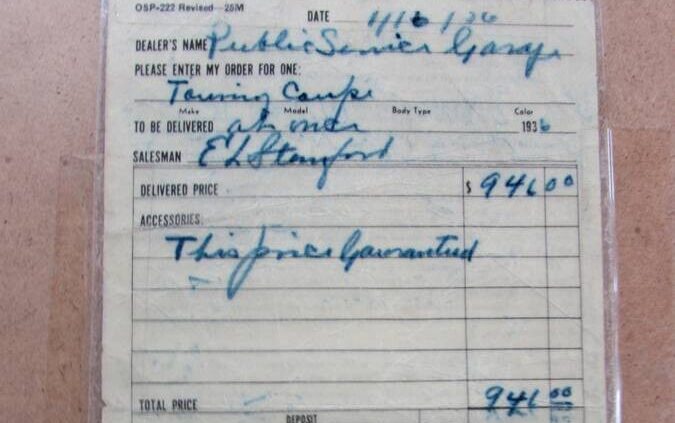 OSP-222 Revised 25M
DATE 1/16/36
DEALER'S NAME Public Service Garage
PLEASE ENTER MY ORDER FOR ONE:
Touring Coupe
Make Model Body Type Color
TO BE DELIVERED at once 1936
SALESMAN E L Stanford
DELIVERED PRICE $ 941 00
ACCESSORIES
This price Gauranteed
TOTAL PRICE 941 00
DEPOSIT